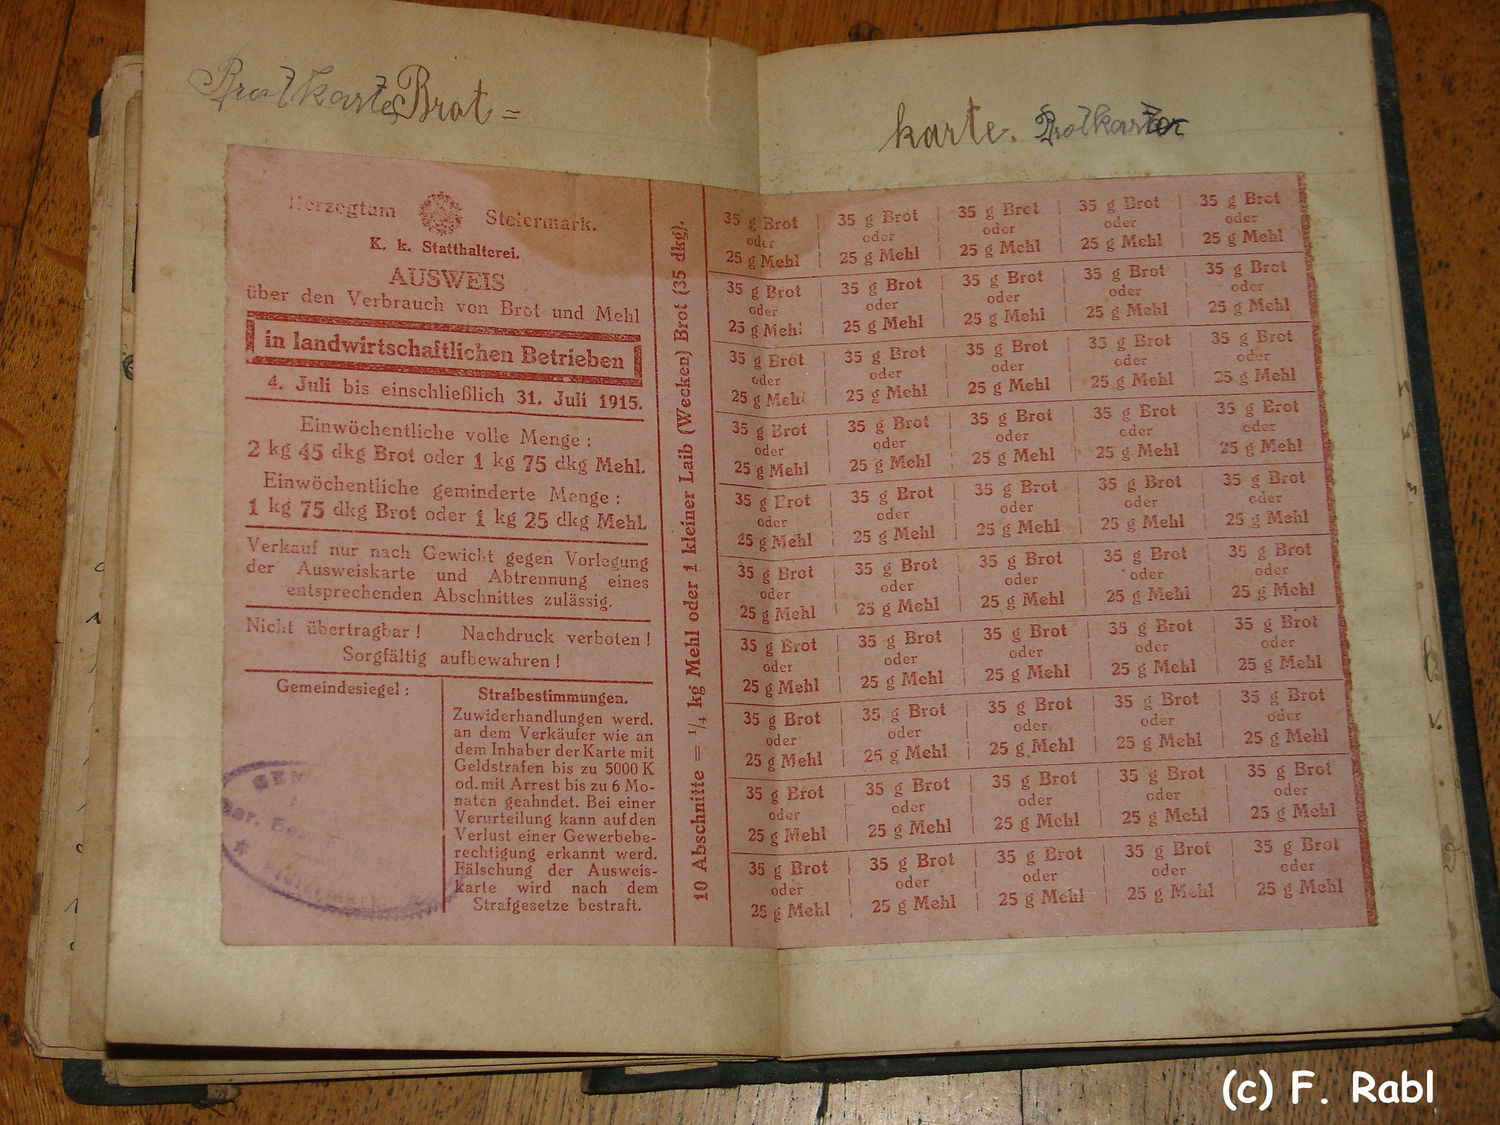 Brotkarte Brot=
karte. Brotkarte
Herzogtum Steiermark.
K. k. Statthalterei.
AUSWEIS
über den Verbrauch von Brot und Mehl
in landwirtschaftlichen Betrieben
4. Juli bis einschließlich 31. Juli 1915.
Einwöchentliche volle Menge :
2 kg 45 dkg Brot oder 1 kg 75 dkg Mehl.
Einwöchentliche geminderte Menge :
1 kg 75 dkg Brot oder 1 kg 25 dkg Mehl.
Verkauf nur nach Gewicht gegen Vorlegung
der Ausweiskarte und Abtrennung eines
entsprechenden Abschnittes zulässig.
Nicht übertragbar ! Nachdruck verboten !
Sorgfältig aufbewahren !
Gemeindesiegel :
Strafbestimmungen.
Zuwiderhandlungen werd.
an dem Verkäufer wie an
dem Inhaber der Karte mit
Geldstrafen bis zu 5000 K
od. mit Arrest bis zu 6 Mo-
naten geahndet. Bei einer
Verurteilung kann auf den
Verlust einer Gewerbebe-
rechtigung erkannt werd.
Fälschung der Ausweis-
karte wird nach dem
Strafgesetze bestraft.
10 Abschnitte = 1/4 kg Mehl oder 1 kleiner Laib (Wecken) Brot (35 dkg).
35 g Brot 35 g Brot 35 g Brot 35 g Brot 35 g Brot
oder oder oder oder oder
25 g Mehl 25 g Mehl 25 g Mehl 25 g Mehl 25 g Mehl
35 g Brot 35 g Brot 35 g Brot 35 g Brot 35 g Brot
oder oder oder oder oder
25 g Mehl 25 g Mehl 25 g Mehl 25 g Mehl 25 g Mehl
35 g Brot 35 g Brot 35 g Brot 35 g Brot 35 g Brot
oder oder oder oder oder
25 g Mehl 25 g Mehl 25 g Mehl 25 g Mehl 25 g Mehl
35 g Brot 35 g Brot 35 g Brot 35 g Brot 35 g Brot
oder oder oder oder oder
25 g Mehl 25 g Mehl 25 g Mehl 25 g Mehl 25 g Mehl
35 g Brot 35 g Brot 35 g Brot 35 g Brot 35 g Brot
oder oder oder oder oder
25 g Mehl 25 g Mehl 25 g Mehl 25 g Mehl 25 g Mehl
35 g Brot 35 g Brot 35 g Brot 35 g Brot 35 g Brot
oder oder oder oder oder
25 g Mehl 25 g Mehl 25 g Mehl 25 g Mehl 25 g Mehl
35 g Brot 35 g Brot 35 g Brot 35 g Brot 35 g Brot
oder oder oder oder oder
25 g Mehl 25 g Mehl 25 g Mehl 25 g Mehl 25 g Mehl
35 g Brot 35 g Brot 35 g Brot 35 g Brot 35 g Brot
oder oder oder oder oder
25 g Mehl 25 g Mehl 25 g Mehl 25 g Mehl 25 g Mehl
35 g Brot 35 g Brot 35 g Brot 35 g Brot 35 g Brot
oder oder oder oder oder
25 g Mehl 25 g Mehl 25 g Mehl 25 g Mehl 25 g Mehl
35 g Brot 35 g Brot 35 g Brot 35 g Brot 35 g Brot
oder oder oder oder oder
25 g Mehl 25 g Mehl 25 g Mehl 25 g Mehl 25 g Mehl
(c) F. Rabl